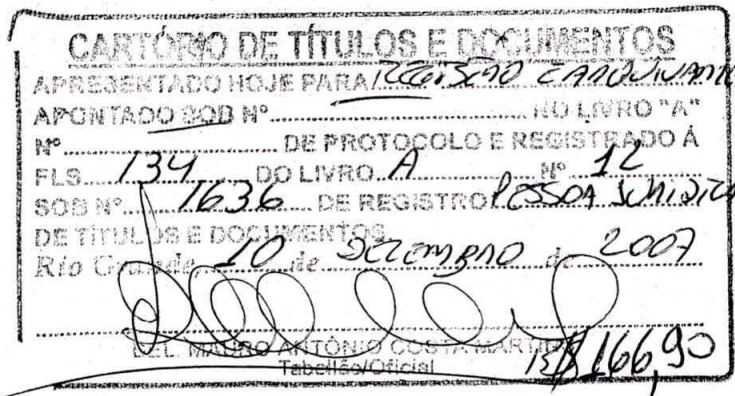 CARTÓRIO DE TÍTULOS E DOCUMENTOS
APRESENTADO HOJE PARA REGISTRO E ARQUIVAMTO
APONTADO SOB Nº ........ NO LIVRO "A"
Nº ........ DE PROTOCOLO E REGISTRADO À
FLS. 134 DO LIVRO A Nº 12
SOB Nº 1636 DE REGISTRO PESSOA JURIDICA
DE TÍTULOS E DOCUMENTOS
Rio Grande, 10 de DEZEMBRO de 2007
BEL. MAURO ANTÔNIO COSTA MARTINS
Tabelião/Oficial
R$ 166,90